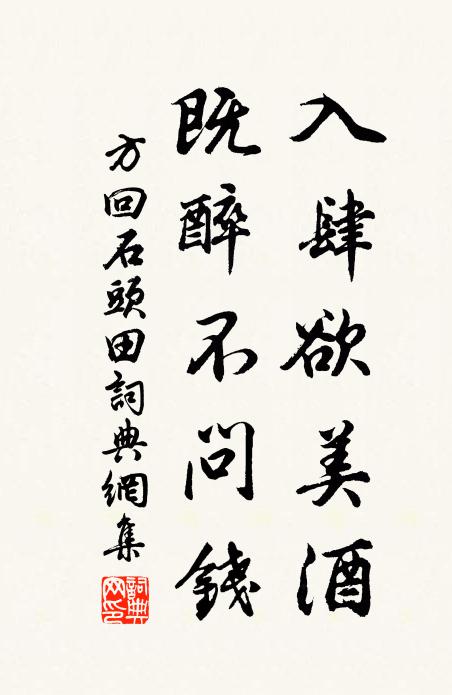 入肆欲美酒
既醉不問錢
方回石頭田詞典網集
詞典網印